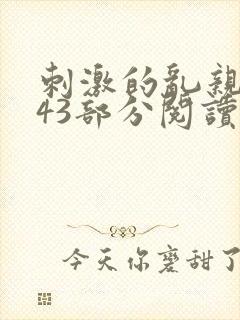 刺激的乱親
43部分閱讀
今天你磨甜了